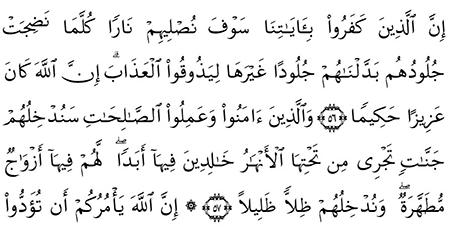 إِنَّ ٱلَّذِينَ كَفَرُوا۟ بِـَٔايَـٰتِنَا سَوْفَ نُصْلِيهِمْ نَارًا كُلَّمَا نَضِجَتْ
جُلُودُهُم بَدَّلْنَـٰهُمْ جُلُودًا غَيْرَهَا لِيَذُوقُوا۟ ٱلْعَذَابَ ۗ إِنَّ ٱللَّهَ كَانَ
عَزِيزًا حَكِيمًا ﴿٥٦﴾ وَٱلَّذِينَ ءَامَنُوا۟ وَعَمِلُوا۟ ٱلصَّـٰلِحَـٰتِ سَنُدْخِلُهُمْ
جَنَّـٰتٍ تَجْرِى مِن تَحْتِهَا ٱلْأَنْهَـٰرُ خَـٰلِدِينَ فِيهَآ أَبَدًا ۖ لَّهُمْ فِيهَآ أَزْوَٰجٌ
مُّطَهَّرَةٌ ۖ وَنُدْخِلُهُمْ ظِلًّا ظَلِيلاً ﴿٥٧﴾ ۞ إِنَّ ٱللَّهَ يَأْمُرُكُمْ أَن تُؤَدُّوا۟